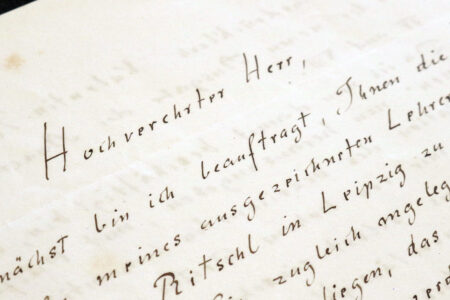 Hochverehrter Herr,
nächst bin ich beauftragt, Ihnen die
meines ausgezeichneten Lehrers
Ritschl in Leipzig zu
zugleich angeleg
liegen, das